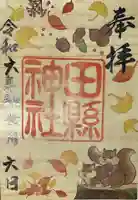 奉拝
田縣
神社
令和六年
六日